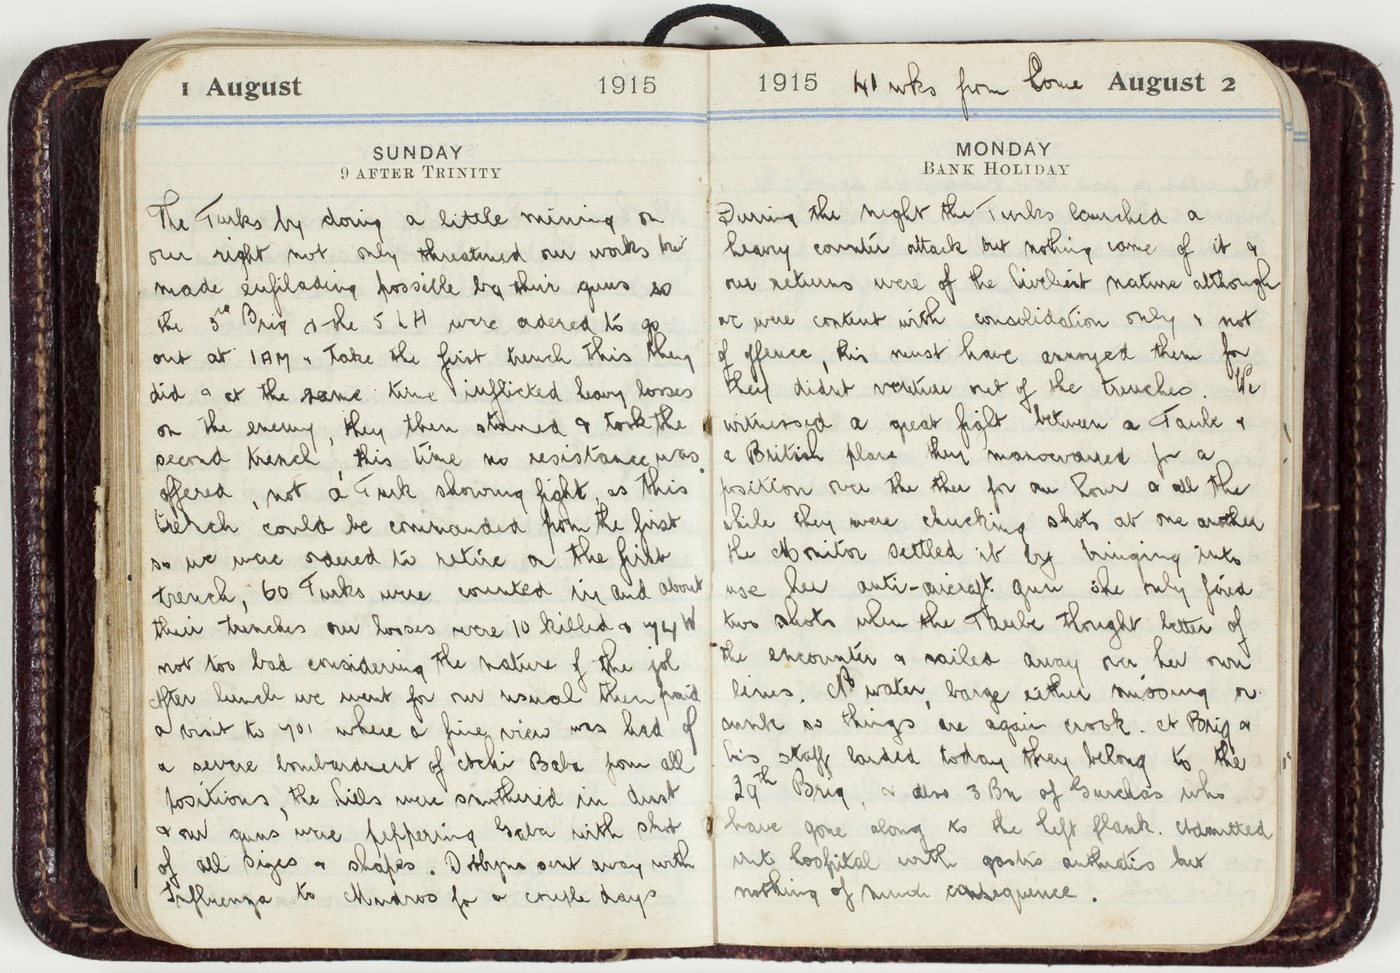 1 August 1915
SUNDAY
9 AFTER TRINITY
The Turks by doing a little mining on
our right not only threatened our works but
made enfilading possible by their guns so
the 3rd Brig & the 5 LH were ordered to go
out at 1AM & take the first trench this they
did & at the same time inflicted heavy losses
on the enemy, they then stormed & took the
second trench, this time no resistance was
offered, not a Turk showing fight, as this
trench could be commanded from the first
so we were ordered to retire on the first
trench, 60 Turks were counted in and about
their trenches our losses were 10 killed & 74 W
not too bad considering the nature of the job
After lunch we went for our usual then paid
a visit to 701 where a fine view was had of
a severe bombardment of Atchi Baba from all
positions, the hills were smothered in dust
& our guns were peppering Gaba with shot
of all sizes & shapes. Dobbyns sent away with
Influenza to Mudros for a couple days
1915 41 wks from home August 2
MONDAY
BANK HOLIDAY
During the night the Turks launched a
heavy counter attack but nothing came of it &
our returns were of the liveliest nature although
we were content with consolidation only & not
of offence, this must have annoyed them for
they didnt venture out of the trenches. We
witnessed a great fight between a Taube &
a British plane they manoevured for a
position over the other for an hour & all the
while they were chucking shots at one another
the Monitor settled it by bringing into
use her anti-aircraft gun she only fired
two shots when the Taube thought better of
the encounter & sailed away over her own
lines. No water, barge either missing or
sunk so things are again crook. A Brig &
his staff landed today they belong to the
29th Brig, & also 3 Bn of Gurchas who
have gone along to the left flank. Admitted
into hospital with gastro but
nothing of much consequence.